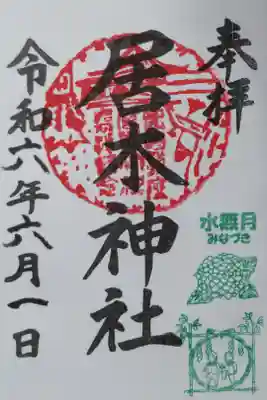 奉拝
居木神社
令和六年六月一日
水無月
みなづき